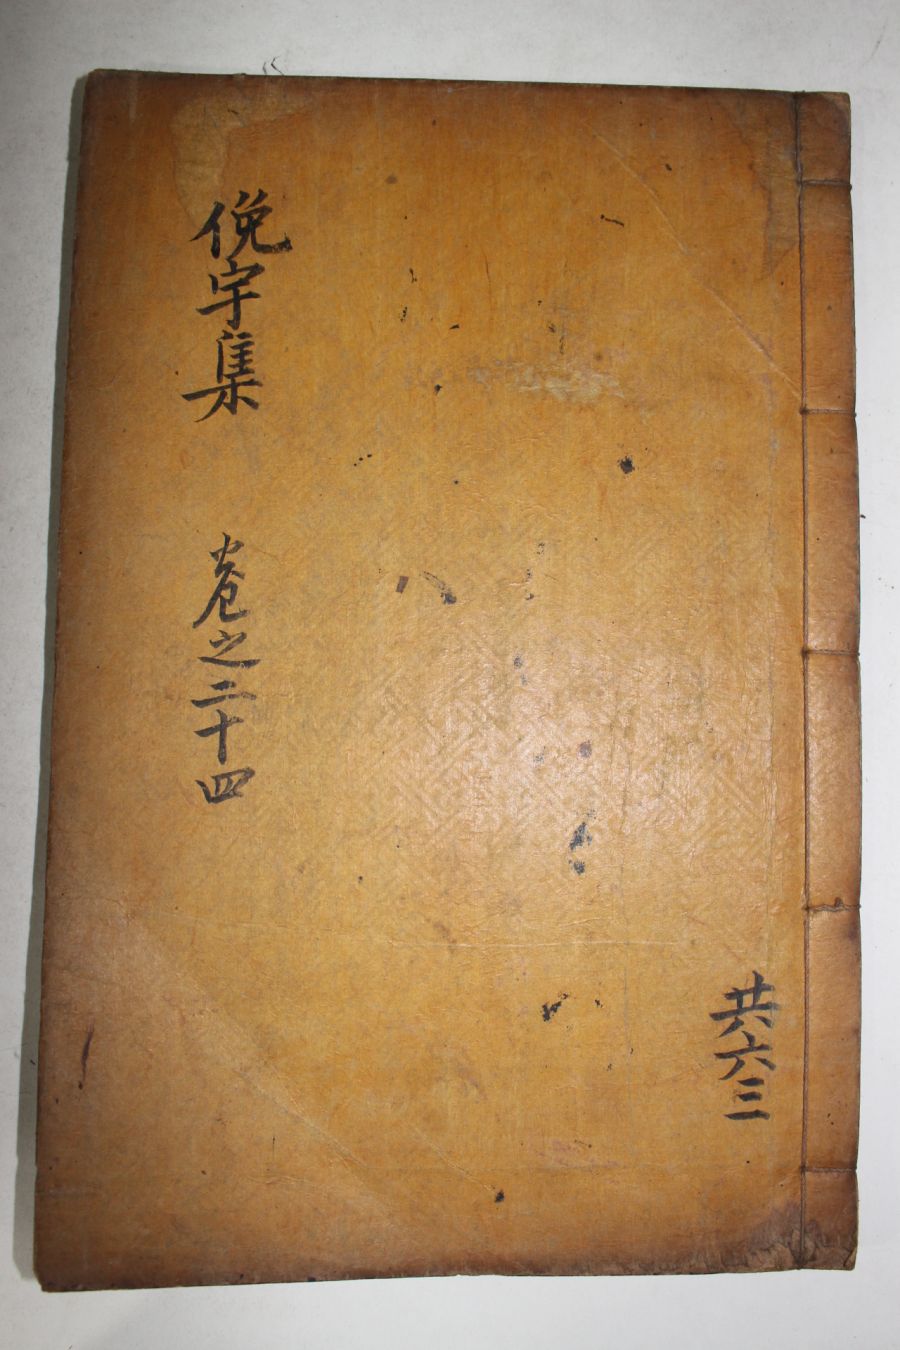 俛宇集 卷之二十四
共六三